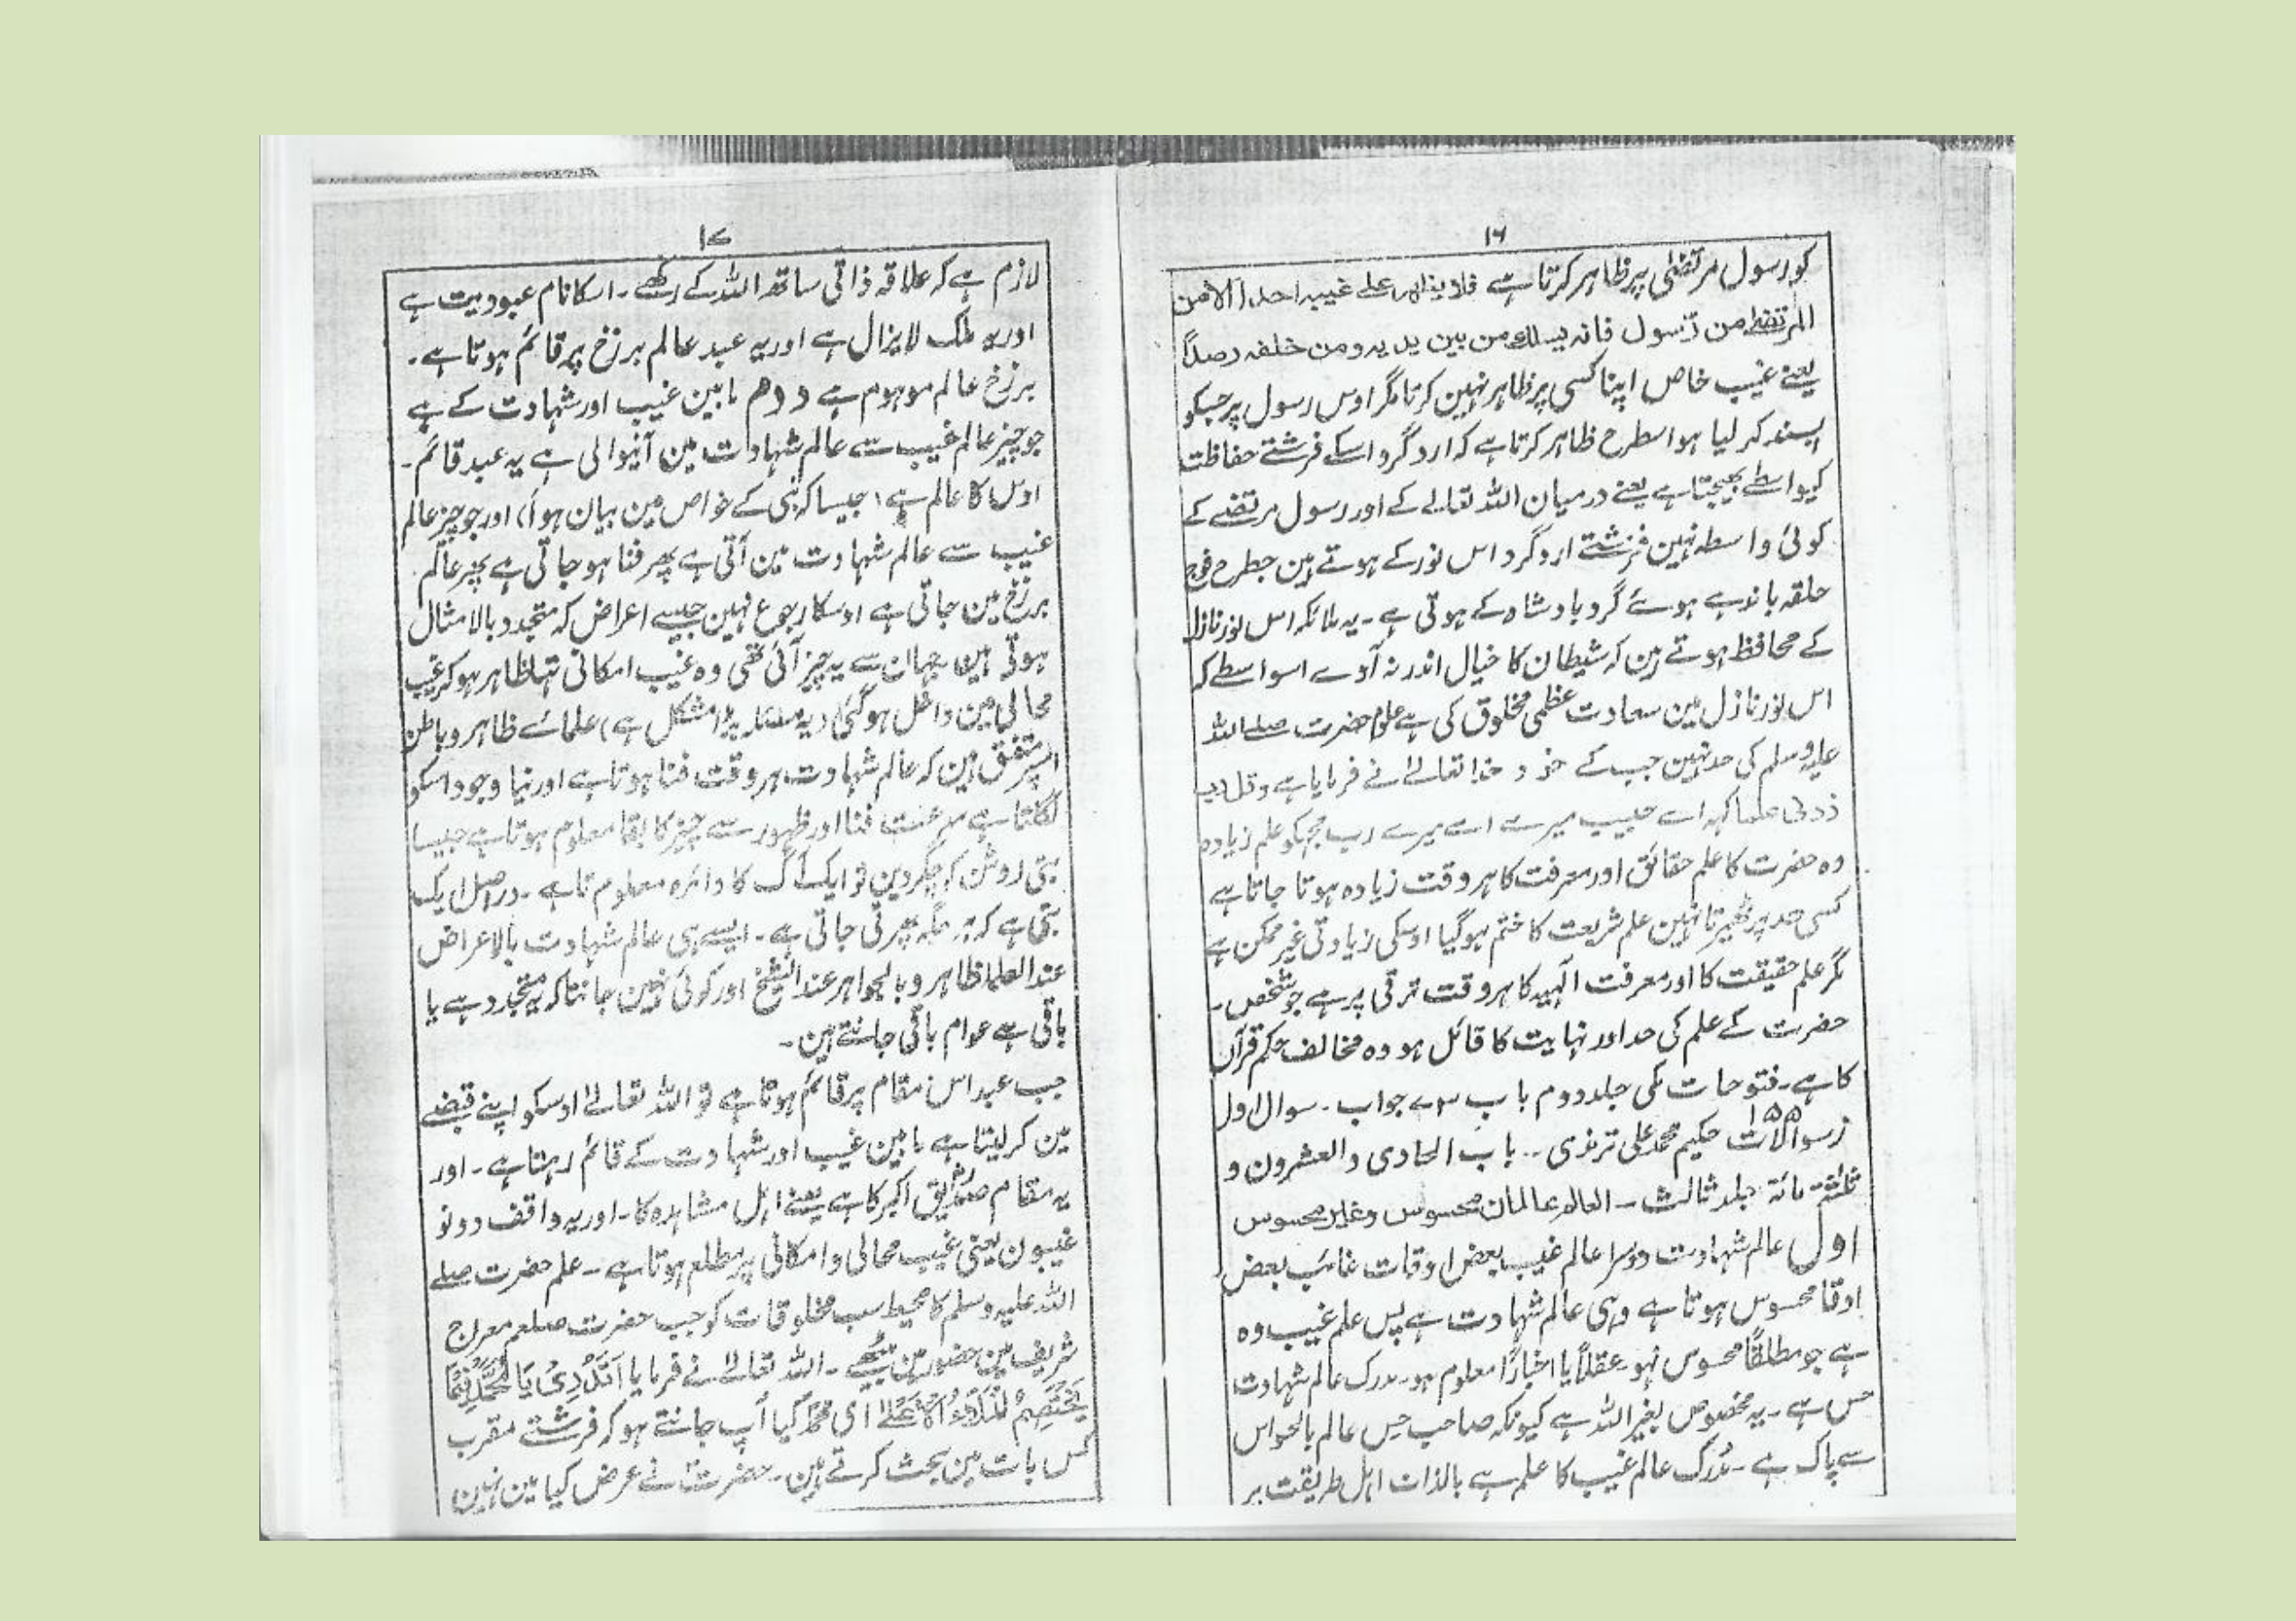 ۱۶
کو رسول مرتضیٰ پر ظاہر کرتا ہے فلا یظہر علے غیبہ احداً الا من
ارتضےٰ من رسول فانہ یسلک من بین یدیہ ومن خلفہ رصداً
یعنے غیب خاص اپنا کسی پر ظاہر نہین کرتا مگر اوس رسول پر جسکو
پسند کر لیا ہو اسطرح ظاہر کرتا ہے کہ ارد گرد اسکے فرشتے حفاظت
کیواسطے بھیجتا ہے یعنے درمیان اللہ تعالے کے اور رسول مرتضے کے
کوئی واسطہ نہین فرشتے ارد گرد اس نور کے ہوتے ہین جطرح فوج
حلقہ باندہے ہوئے گرد بادشاہ کے ہوتی ہے ۔ یہ ملائکہ اس نور نازلہ
کے محافظ ہوتے ہین کہ شیطان کا خیال اندر نہ آوے اسواسطے کہ
اس نور نازل مین سعادت عظمی مخلوق کی ہے علوم حضرت صلے اللہ
علیہ وسلم کی حد نہین جب کے خود خدا تعالےٰ نے فرمایا ہے وقل رب
زدنی علما کہہ اے حبیب میرے اے میرے رب مجہکو علم زیادہ
دہ حضرت کا علم حقائق اور معرفت کا ہر وقت زیادہ ہوتا جاتا ہے
کسی حد پر ٹھیرتا نہین علم شریعت کا ختم ہوگیا اوسکی زیادتی غیر ممکن ہے
مگر علم حقیقت کا اور معرفت الٰہیہ کا ہر وقت ترقی پر ہے جو شخص ۔
حضرت کے علم کی حد اور نہایت کا قائل ہو وہ مخالف حکم قرآن
کا ہے ۔ فتوحات مکی جلد دوم باب ۷۳ جواب ۔ سوال اول
ز سوالات ۱۵۵ حکیم محمد علی ترمذی .. باب الحادی والعشرون و
ثلثۃ مائۃ جلد ثالث ۔ العالم عالمان محسوس وغیر محسوس
اول عالم شہادت دوسرا عالم غیب بعض اوقات غائب بعض
اوقا محسوس ہوتا ہے وہی عالم شہادت ہے پس علم غیب وہ
ہے جو مطلقًا محسوس نہو عقلاً یا اخبارًا معلوم ہو ۔ مدرک عالم شہادت
حس ہے ۔ یہ مخصوص بغیر اللہ ہے کیونکہ صاحب حس عالم بالحواس
سے پاک ہے ۔ مُدرک عالم غیب کا علم ہے بالذات اہل طریقت پر
۱۷
لازم ہے کہ علاقہ ذاتی ساتھ اللہ کے رکھے ۔ اسکا نام عبودیت ہے
اور یہ ملک لا یزال ہے اور یہ عبد عالم برزخ پر قائم ہوتا ہے ۔
برزخ عالم موہوم ہے مابین غیب اور شہادت کے ہے
جو چیز عالم غیب سے عالم شہادت مین آنیوالی ہے یہ عبد قائم ۔
اوس کا عالم ہے ، جیسا کہ نبی کے خواص مین بیان ہوا ) اور جو چیز عالم
غیب سے عالم شہادت مین آتی ہے پھر فنا ہو جاتی ہے پھر عالم
برزخ مین جاتی ہے اوسکا رجوع نہین جیسے اعراض کہ متجدد بالامثال
ہوتی ہین جہان سے یہ چیز آئی تھی وہ غیب امکانی تہا ظاہر ہو کر غیب
محالی مین داخل ہوگئی ( یہ مسئلہ بڑا مشکل ہے ) علمائے ظاہر و باطن
اسپر متفق ہین کہ عالم شہادت ہر وقت فنا ہوتا ہے اور نیا وجود اسکو
لگتا ہے سرعنت فنا اور ظہور سے چیز کا بقا معلوم ہوتا ہے جیسا
بتی روشن کو چکر دین تو ایک آگ کا دائرہ معلوم تا ہے ۔ دراصل ایک
بتی ہے کہ ہر جگہ پھرتی جاتی ہے ۔ ایسے ہی عالم شہادت بالاعراض
عند العلما ظاہر و بالجواہر عند الشیخ اور کوئی نہین جانتا کہ یہ متجدد ہے یا
باقی ہے عوام باقی جانتے ہین ۔
جب عبد اس مقام پر قائم ہوتا ہے تو اللہ تعالےٰ اوسکو اپنے قبضے
مین کر لیتا ہے مابین غیب اور شہادت کے قائم رہتا ہے ۔ اور
یہ مقام صدیق اکبر کا ہے یعنے اہل مشاہدہ کا ۔ اور یہ واقف دونو
غیبون یعنی غیب محالی و امکانی پر مطلع ہوتا ہے ۔ علم حضرت صلے
اللہ علیہ وسلم کا محیط سب مخلوقات کو جب حضرت صلعم معراج
شریف مین حضور مین پہنچے ۔ اللہ تعالےٰ نے فرمایا اَتَدْرِیْ یَا مُحَمَّدُ فِیْمَا
یَخْتَصِمُ الْمَلَاءُ الْاَعْلٰے ای محمدؐ کیا آپ جانتے ہو کہ فرشتے مقرب
کس بات مین بحث کرتے ہین ۔ حضرتؐ نے عرض کیا مین نہین